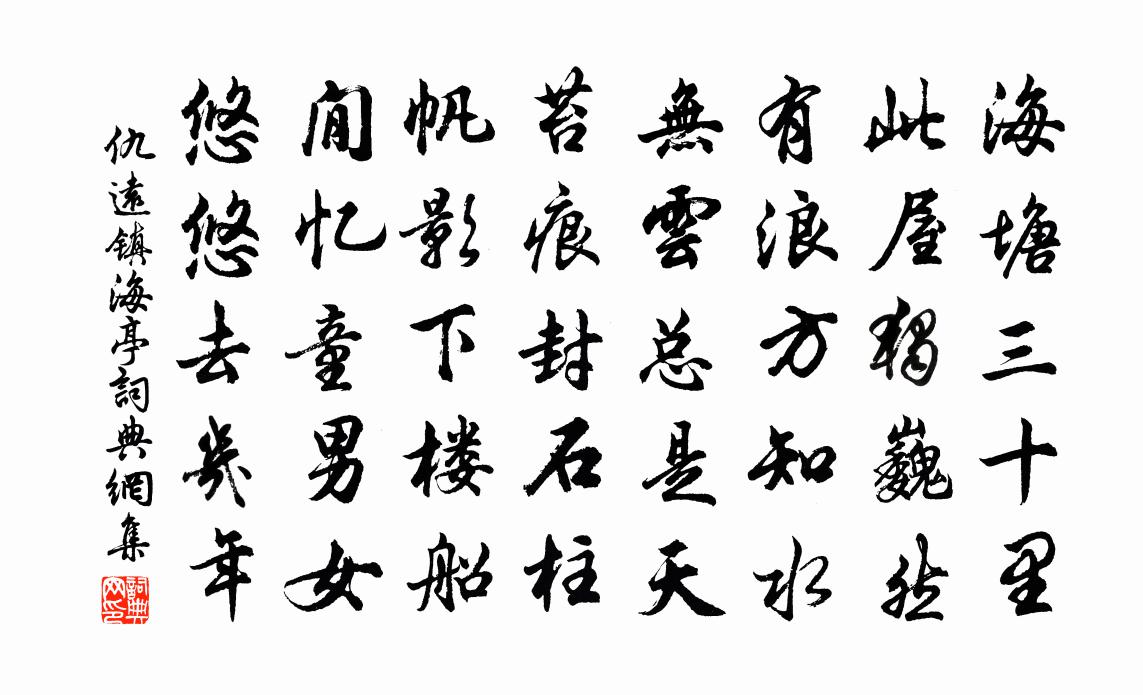 海塘三十里
此屋独巍然
有浪方知水
無雲总是天
苔痕封石柱
帆影下楼船
閒忆童男女
悠悠去幾年
仇遠鎮海亭詞典網集
詞典网印